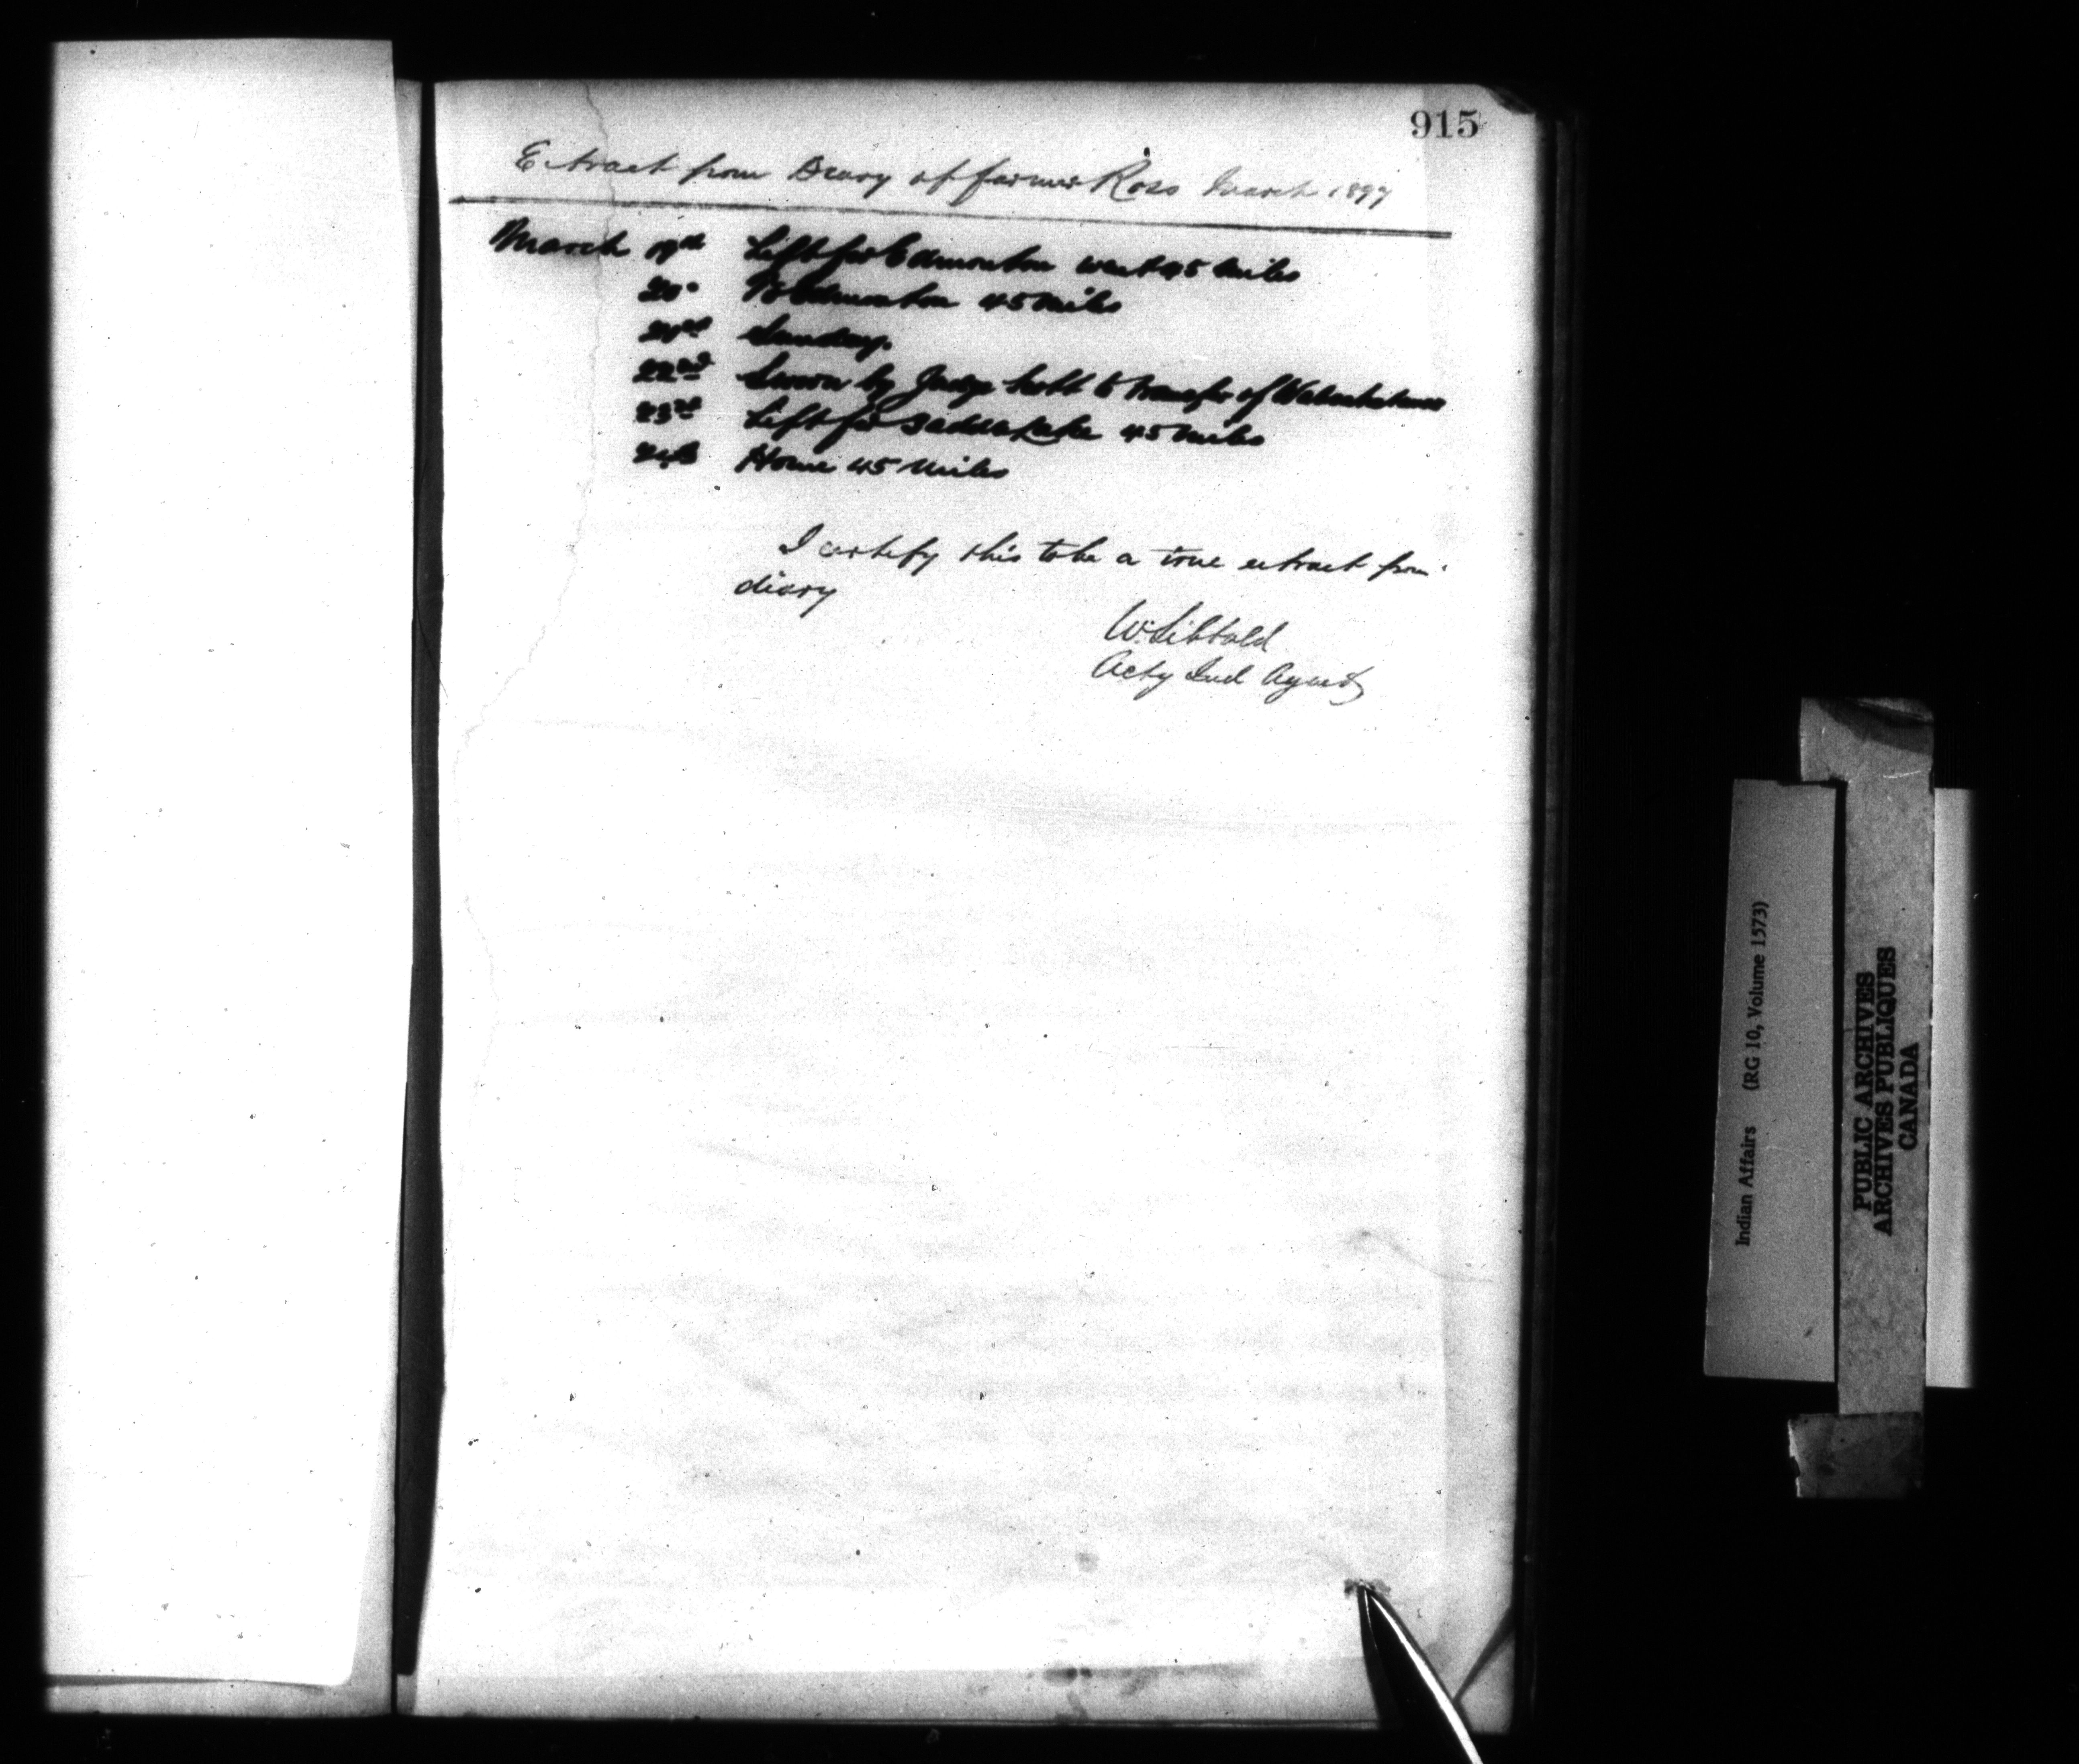 915
Extract from Diary of farmer Ross March 1897
March 19th Left for Edmonton went 45 miles
20" To Edmonton 45 miles
21st Sunday.
22nd Sworn by Judge Scott to transfer of
23rd Left for Saddle Lake 45 miles
24th Home 45 miles
I certify this to be a true extract from
diary
W. Sibbald
Actg Ind Agent
Indian Affairs (RG 10, Volume 1573)
PUBLIC ARCHIVES
ARCHIVES PUBLIQUES
CANADA